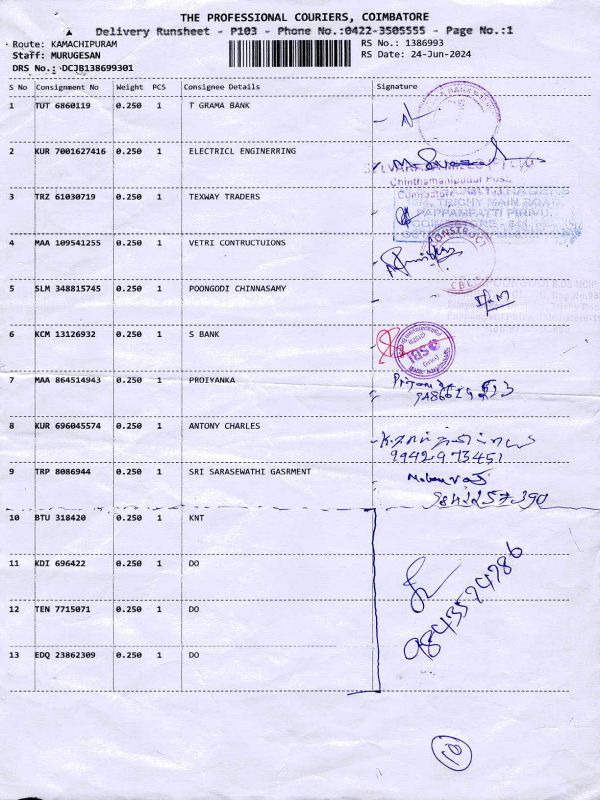 THE PROFESSIONAL COURIERS, COIMBATORE
Delivery Runsheet - P103 - Phone No.:0422-3505555 - Page No.:1
Route: KAMACHIPURAM RS No.: 1386993
Staff: MURUGESAN RS Date: 24-Jun-2024
DRS No.: DCJB138699301
S No Consignment No Weight PCS Consignee Details Signature
1 TUT 6860119 0.250 1 T GRAMA BANK
2 KUR 7001627416 0.250 1 ELECTRICL ENGINERRING
Chinthamanipudur Post,
3 TRZ 61030719 0.250 1 TEXWAY TRADERS
TRICHY MAIN ROAD,
PAPPAMPATTI PIRIVU,
4 MAA 109541255 0.250 1 VETRI CONTRUCTUIONS
CONSTRUCT
5 SLM 348815745 0.250 1 POONGODI CHINNASAMY
6 KCM 13126932 0.250 1 S BANK
SBI
7 MAA 864514943 0.250 1 PROIYANKA
8 KUR 696045574 0.250 1 ANTONY CHARLES
9942973451
9 TRP 8086944 0.250 1 SRI SARASEWATHI GASRMENT
10 BTU 318420 0.250 1 KNT
11 KDI 696422 0.250 1 DO
12 TEN 7715071 0.250 1 DO
9843594786
13 EDQ 23862309 0.250 1 DO
10